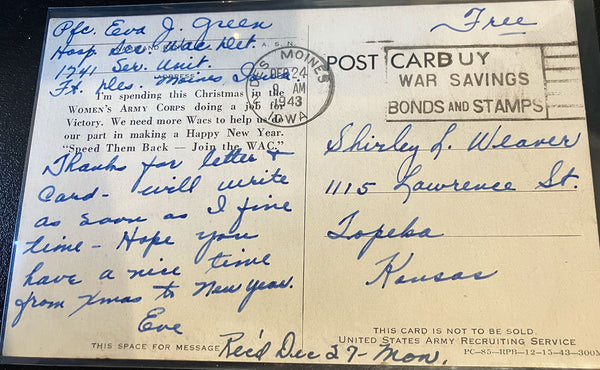 Pfc. Eva J. Green
Hosp Sec. Wac Det.
A.S.N.
1741 Ser. Unit.
ADDRESS
Ft. Des. Moines Iowa.
I'm spending this Christmas in the
WOMEN'S ARMY CORPS doing a job for
Victory. We need more Wacs to help us do
our part in making a Happy New Year.
"Speed Them Back — Join the WAC."
Thanks for letter &
Card - will write
as soon as I fine
time - Hope you
have a nice time
from Xmas to New year.
Eve
THIS SPACE FOR MESSAGE
Rec'd Dec 27 - Mon.
Free
DES MOINES
DEC 24
AM
1943
IOWA
POST CARD
BUY
WAR SAVINGS
BONDS AND STAMPS
Shirley L. Weaver
1115 Lawrence St.
Topeka
Kansas
THIS CARD IS NOT TO BE SOLD.
UNITED STATES ARMY RECRUITING SERVICE
PC-85-RPB-12-15-43-300M